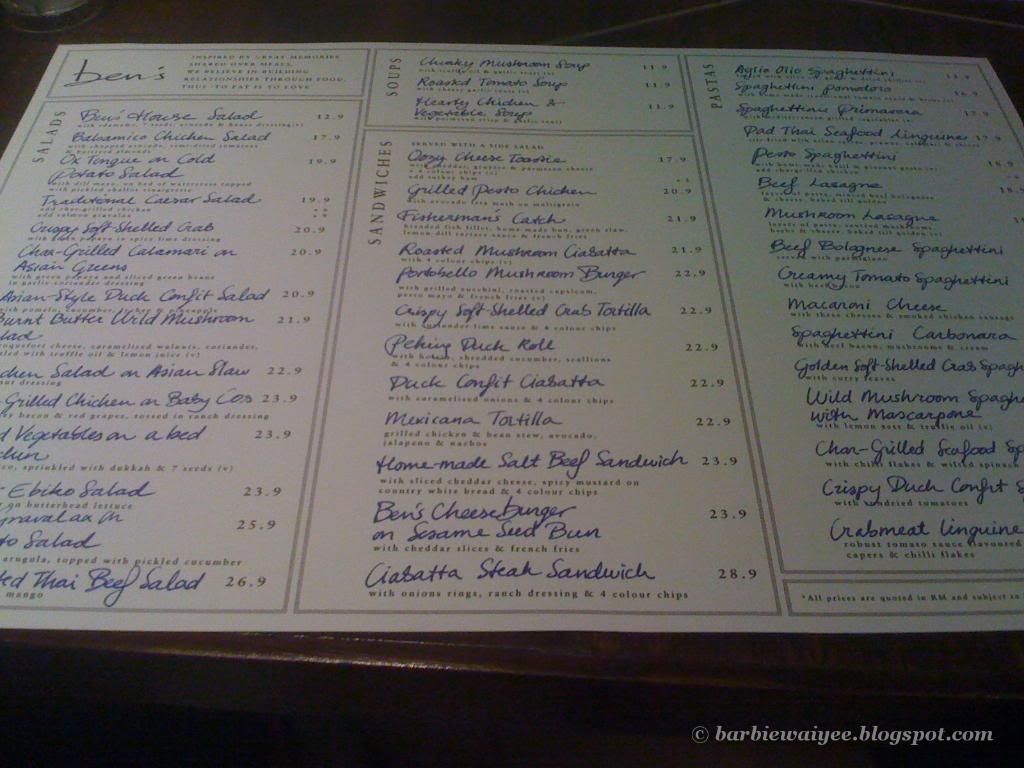 ben's
INSPIRED BY GREAT MEMORIES
SHARED OVER MEALS,
WE BELIEVE IN BUILDING
RELATIONSHIPS THROUGH FOOD,
THUS TO EAT IS TO LOVE
SALADS
Ben's House Salad 12.9
Balsamico Chicken Salad 17.9
Ox Tongue on Cold 19.9
Potato Salad
Traditional Caesar Salad 19.9
add char-grilled chicken
add salmon gravalax
Crispy Soft-Shelled Crab 20.9
Char-Grilled Calamari on 20.9
Asian Greens
with green papaya and sliced green beans
in garlic-coriander dressing
Asian-Style Duck Confit Salad 20.9
Burnt Butter Wild Mushroom 21.9
roquefort cheese, caramelised walnuts, coriander,
with truffle oil & lemon juice (v)
Salad on Asian Slaw 22.9
dressing
Grilled Chicken on Baby Cos 23.9
bacon & red grapes, tossed in ranch dressing
Vegetables on a bed 23.9
sprinkled with dukkah & 7 seeds (v)
Ebiko Salad 23.9
on butterhead lettuce
Gravalax on 25.9
Salad
arugula, topped with pickled cucumber
Thai Beef Salad 26.9
mango
SOUPS
Chunky Mushroom Soup 11.9
Roasted Tomato Soup 11.9
Hearty Chicken & 11.9
Vegetable Soup
SANDWICHES
SERVED WITH A SIDE SALAD
Oozy Cheese Toastie 17.9
with cheddar, gruyere & parmesan cheese
& 4 colour chips (v)
add turkey ham
Grilled Pesto Chicken 20.9
Fisherman's Catch 21.9
breaded fish fillet, home-made bun, green slaw,
lemon dill tartare sauce & french fries
Roasted Mushroom Ciabatta 21.9
with 4 colour chips (v)
Portobello Mushroom Burger 22.9
with grilled zucchini, roasted capsicum,
pesto mayo & french fries (v)
Crispy Soft-Shelled Crab Tortilla 22.9
with coriander lime sauce & 4 colour chips
Peking Duck Roll 22.9
with hoisin, shredded cucumber, scallions
& 4 colour chips
Duck Confit Ciabatta 22.9
with caramelised onions & 4 colour chips
Mexicana Tortilla 22.9
grilled chicken & bean stew, avocado,
jalapeno & nachos
Home-made Salt Beef Sandwich 23.9
with sliced cheddar cheese, spicy mustard on
country white bread & 4 colour chips
Ben's Cheeseburger 23.9
on Sesame Seed Bun
with cheddar slices & french fries
Ciabatta Steak Sandwich 28.9
with onions rings, ranch dressing & 4 colour chips
PASTAS
Aglio Olio Spaghettini
Spaghettini Pomodoro
Spaghettini Primavera 17.9
Pad Thai Seafood Linguine 17.9
Pesto Spaghettini
add char-grilled chicken
Beef Lasagne
Mushroom Lasagne
Beef Bolognese Spaghettini
served with parmigiano
Creamy Tomato Spaghettini
Macaroni Cheese
with three cheeses & smoked chicken sausage
Spaghettini Carbonara
with beef bacon, mushrooms & cream
Golden Soft-Shelled Crab
with curry leaves
Wild Mushroom
with Mascarpone
with lemon zest & truffle oil (v)
Char-Grilled Seafood
with chilli flakes & wilted
Crispy Duck Confit
with sundried tomatoes
Crabmeat Linguine
robust tomato sauce flavoured
capers & chilli flakes
*All prices are quoted in RM and subject to
© barbiewaiyee.blogspot.com